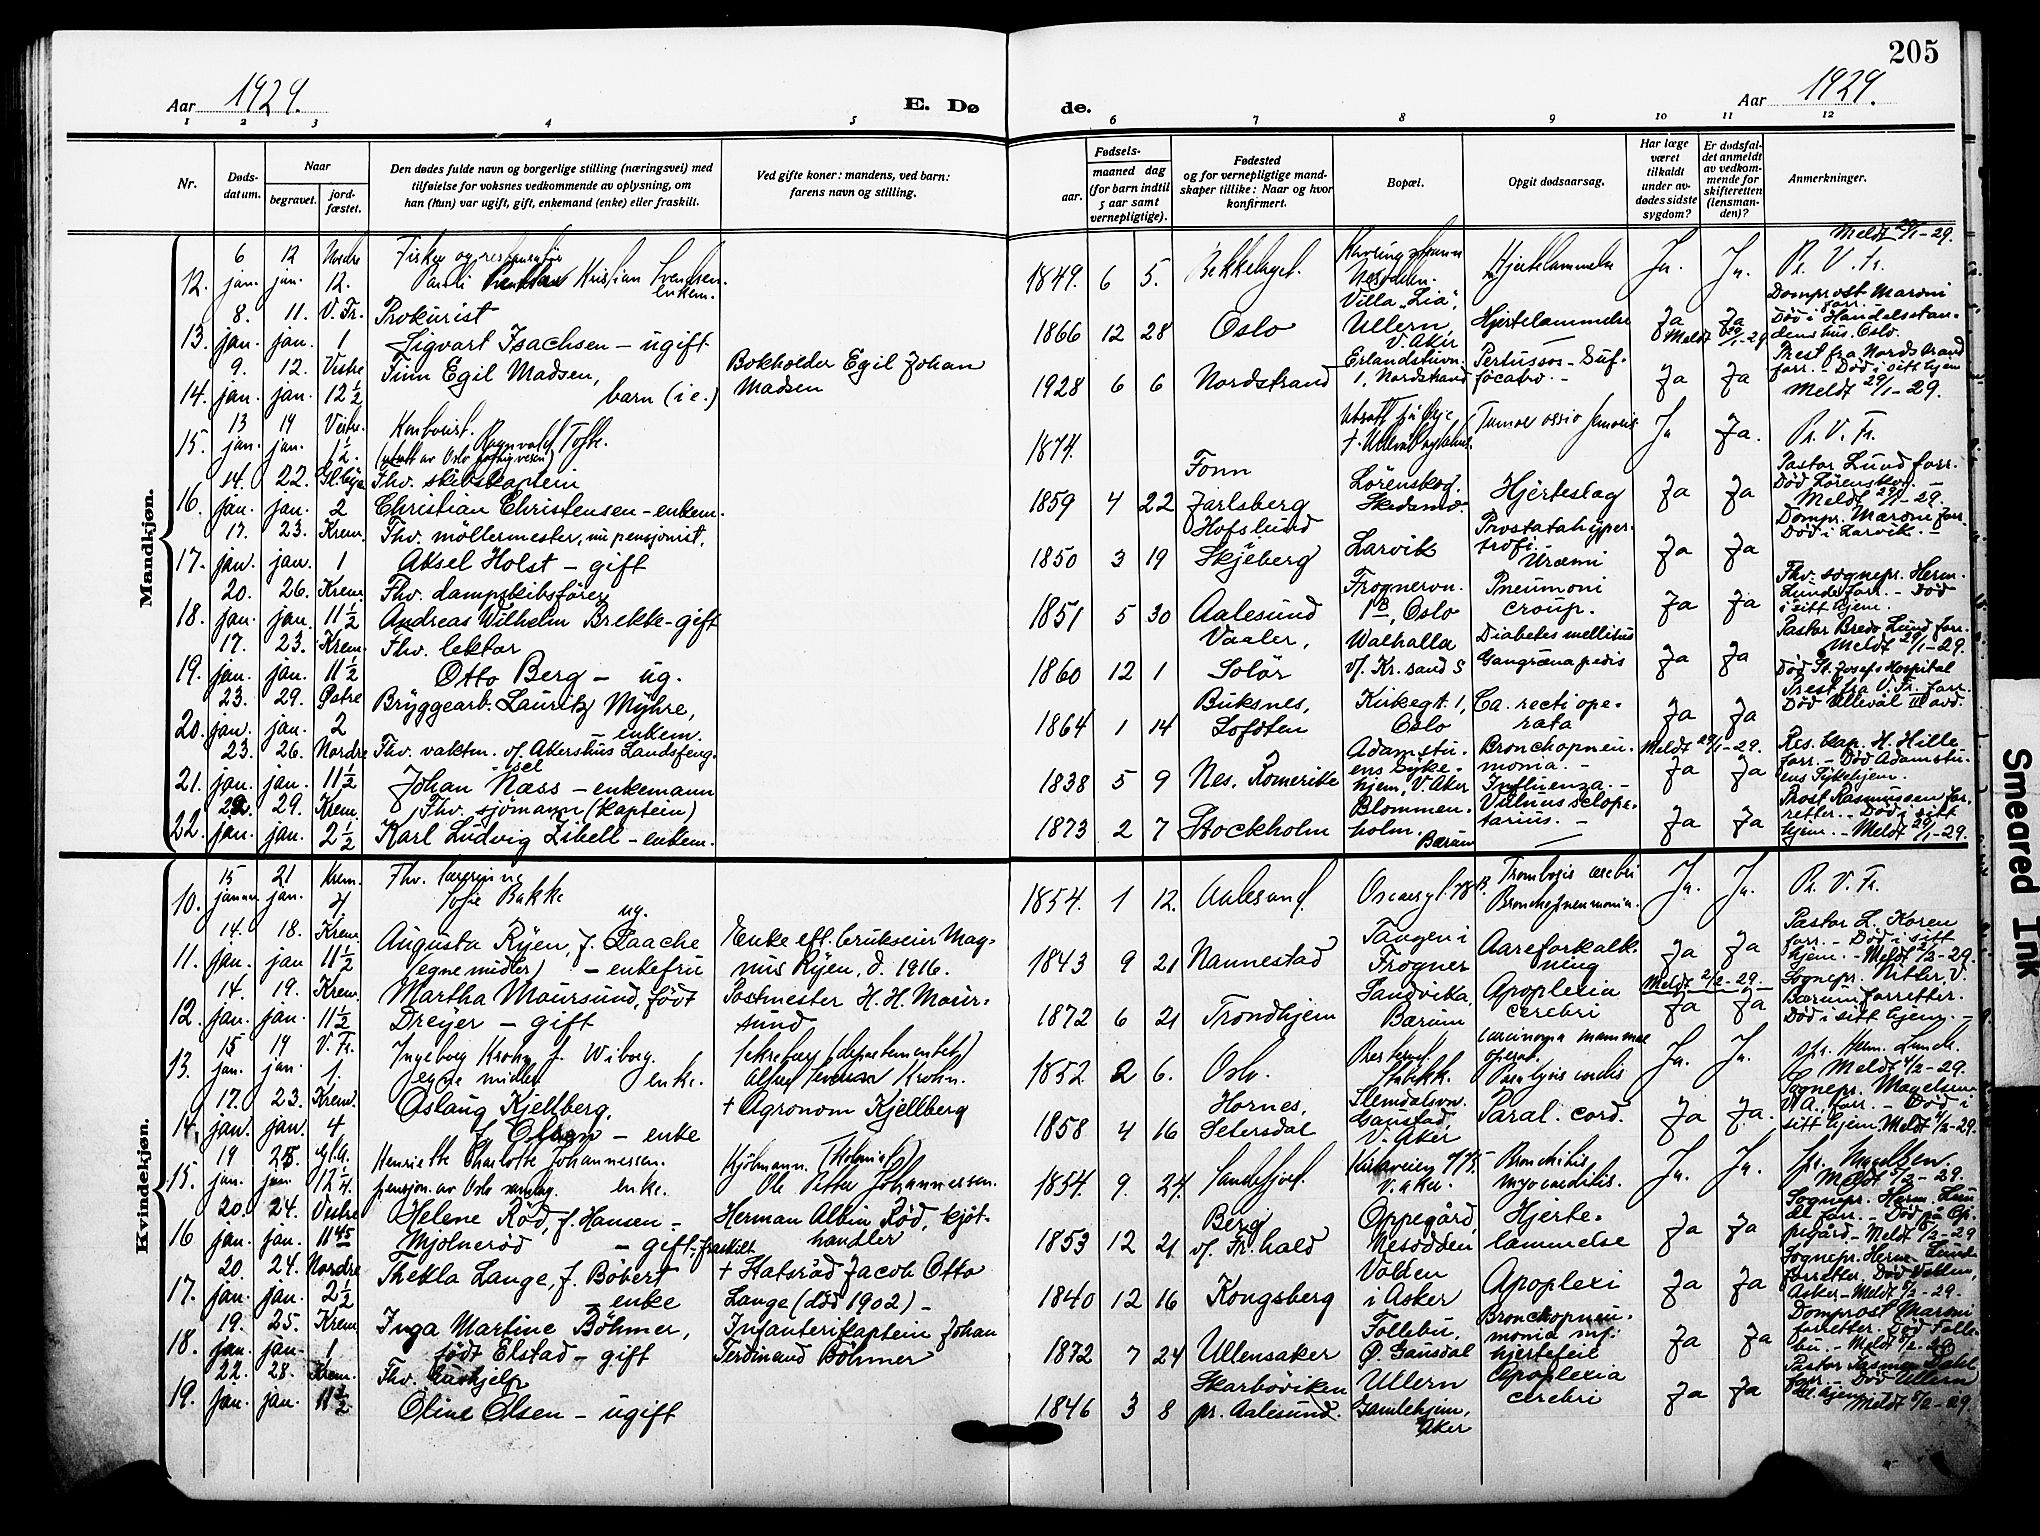 205
Aar 1929.
E. Dø
de.
Aar 1929.
1 2 3 4 5 6 7 8 9 10 11 12
Nr.
Døds-
datum.
Naar
begravet.
jord-
fæstet.
Den dødes fulde navn og borgerlige stilling (næringsvei) med
tilføielse for voksnes vedkommende av oplysning, om
han (hun) var ugift, gift, enkemand (enke) eller fraskilt.
Ved gifte koner: mandens, ved barn:
farens navn og stilling.
Fødsels-
aar.
maaned dag
(for barn indtil
5 aar samt
vernepligtige).
Fødested
og for vernepligtige mand-
skaper tillike: Naar og hvor
konfirmert.
Bopæl.
Opgit dødsaarsag.
Har læge
været
tilkaldt
under av-
dødes sidste
sygdom?
Er dødsfal-
det anmeldt
av vedkom-
mende for
skifteretten
(lensman-
den)?
Anmerkninger.
Mandkjøn.
12. 6 jan. 12 jan. Nordre 12.
Kristian Svendsen
enkem.
1849. 6 5. Bekkelaget. Nesodden. Hjertelammelse Ja. Ja. Meldt 29/1-29.
Pr. V. Fr.
13. 8. jan. 11. jan. V. Fr. 1
Prokurist
Sigvart Isachsen – ugift
1866 12 28 Oslo
Villa "Lia",
Ullern,
V. Aker
Hjertelammelse
Ja Ja
Domprost Maroni
forr.
Død i Handelsstan-
dens hus. Oslo.
Meldt 29/1-29
14. 9. jan. 12. jan. Vestre 12 1/2
Finn Egil Madsen,
barn (i e.)
Bokholder Egil Johan
Madsen
1928 6 6 Nordstrand
1, Nordstrand
Pertussos – Suf-
focatio. –
Ja Ja
Prest fra Nordstrand
forr. – Død i sitt hjem
Meldt 29/1-29.
15. 13 jan. 19 jan. Vestre. 1 1/2
Kontorist. Ragnvald Tofte.
1874. Ja Ja. Pr. V. Fr.
16. 14. jan. 22. jan. 2
Fhv. skibskaptein
Christian Christensen – enkem.
1859 4 22
Jarlsberg
Lörenskog.
Skedsmo.
Hjerteslag
Ja Ja
Pastor Lund forr.
Død Lørenskog. –
Meldt 29/1-29.
17. 17. jan. 23. jan. Krem. 1
Fhv. möllermester, nu pensjonist,
Aksel Holst – gift
1850 3 19
Hafslund
Skjeberg
Larvik
Prostatahyper-
trofi.
Uræmi
Ja Ja
Dompr. Maroni forr.
Død i Larvik. –
18. 20. jan. 26. jan. Krem. 11 1/2
Fhv. dampskibsfører
Andreas Wilhelm Brekke – gift
1851 5 30 Aalesund
Frognervn.
1B, Oslo
Pneumoni
croup.
Ja Ja
Fhv. sognepr. Herm.
Lunde forr. – Død
i sitt hjem.
19. 17. jan. 23. jan. Krem. 11 1/2
Fhv. lektor
Otto Berg – ug.
1860 12 1
Vaaler,
Solör
Walhalla
v/ Kr. sand S
Diabetes mellitus
Gangræna pedis
Ja Ja
Pastor Bredo Lund forr.
Meldt 29/1-29.
Død St. Josefs Hospital
20. 23. jan. 29. jan. Østre 2
Bryggearb. Lauritz Myhre,
– enkem.
1864 1 14
Buksnes,
Lofoten
Kirkegt. 1,
Oslo
Ca. recti ope-
rata
Ja Ja
Prest fra V. Fr. forr.
Død Ullevål III avd.
Meldt 29/1-29.
21. 23. jan. 26. jan. Nordre 11 1/2
Fhv. vaktm. v/ Akershus Landsfeng-
sel
Johan Næss – enkemann
1838 5 9 Nes. Romerike
Adamstu-
ens Syke-
hjem, V. Aker
Bronchopneu-
monia. –
Influenza. –
Ja Ja
Res. kap. H. Hille
forr. – Død Adamstu-
ens Sykehjem.
22. jan. 29. jan. Krem. 2 1/2
Fhv. sjömann (kaptein)
Karl Ludvig Zibell – enkem.
1873 2 7 Stockholm
Blommen-
holm.
Bærum
Vulnus sclope-
tarius. –
Ja Ja
Prost Rasmussen for-
retter. – Død i sitt
hjem. – Meldt 29/1-29.
Kvindekjøn.
10. 15 januar 21 jan. Krem. 4
Fhv. lærerinne
Sofie Bakke
ug.
1854. 1 12. Aalesund.
Trombosis cerebri
Bronchopneumonia.
Ja. Ja. Pr. V. Fr.
11. 14. jan. 18. jan Krem. 11 1/2
Augusta Ryen, f. Laache
(egne midler) – enkefru
Enke eft. brukseier Mag-
nus Ryen, d. 1916.
1843 9 21 Nannestad
Tangen i
Frogner
Aareforkalk-
ning
Ja Ja
Pastor L. Koren
forr. – Død i sitt
hjem. – Meldt 2/2-29.
12. 14. jan. 19. jan. Krem. 11 1/2
Martha Maursund, født
Dreyer – gift
Postmester H. H. Maur-
sund
1872 6 21 Trondhjem
Sandvika,
Bærum
Apoplexia
cerebri
Meldt 2/2-29.
Ja Ja
Bærum forretter.
Død i sitt hjem. –
13. 15 jan. 19 jan. V. Fr. 1.
Ingeborg Krohn f. Wiborg.
egne midler enke.
Sekretær (departementet)
Krohn.
1852 2 6. Oslo.
Carcinoma mammae
operat.
Paralysis cordis
Ja. Ja.
spr. Herm. Lunde.
Meldt 4/2-29.
14. 17. jan. 23. jan. Krem. 4
Aslaug Kjellberg,
f. Olsen – enke
+ Agronom Kjellberg
1858 4 16
Hornes,
Setersdal
Slemdalsvn.
Gaustad,
V. Aker
Paral. cord.
Ja Ja.
Sognepr. Magelssen
V. A., forr. – Død i
sitt hjem. Meldt 4/2-29.
15. 19 jan. 25. jan. 12 1/4.
Henriette Charlotte Johannessen.
enke.
Ole Petter Johannessen.
1854. 9. 24. Sandefjord.
V. Aker.
Bronchitis
Myocarditis.
Ja. Ja.
spr. Magelssen
Meldt 5/2-29.
16 20. jan. 24. jan. Vestre 11 45
Helene Röd, f. Hansen –
Mjølneröd – gift. fraskilt
Herman Albin Röd, kjöt-
handler
1853 12 21
Berg
v/ Fr.hald
Oppegård,
Nesodden
Hjerte-
lammelse
Ja Ja
Sognepr. Herm. Lun-
de forr. – Død på Op-
pegård – Meldt 5/2-29
17. 20. jan. 24. jan. Nordre 2 1/2
Thekla Lange, f. Böbert
– enke
+ Statsråd Jacob Otto
Lange (død 1902) –
1840 12 16 Kongsberg
Vollen
i Asker
Apoplexi
Ja Ja
Sognepr. Herm. Lunde
forretter. Død Vollen,
Asker – Meldt 5/2-29.
18. 19. jan. 25. jan. Krem 1
Inga Martine Böhmer,
født Elstad – gift
Infanterikaptein Johan
Ferdinand Böhmer
1872 7 24 Ullensaker
Follebu,
Ø. Gausdal
Bronchopneu-
monia inf.
hjertefeil
Ja Ja
Domprost Maroni
forretter. Død Folle-
bu. – Meldt 5/2-29
19. 22. jan. 28. jan. Krem. 11 1/2
Fhv. hushjelp
Oline Olsen – ugift
1846 3 8
Skarbövviken
pr. Aalesund.
Ullern
Gamlehjem,
Aker
Apoplexia
cerebri
Ja Ja
forr. – Død Ullern
Gl. hjem
Meldt 5/2-29.
Smeared Ink